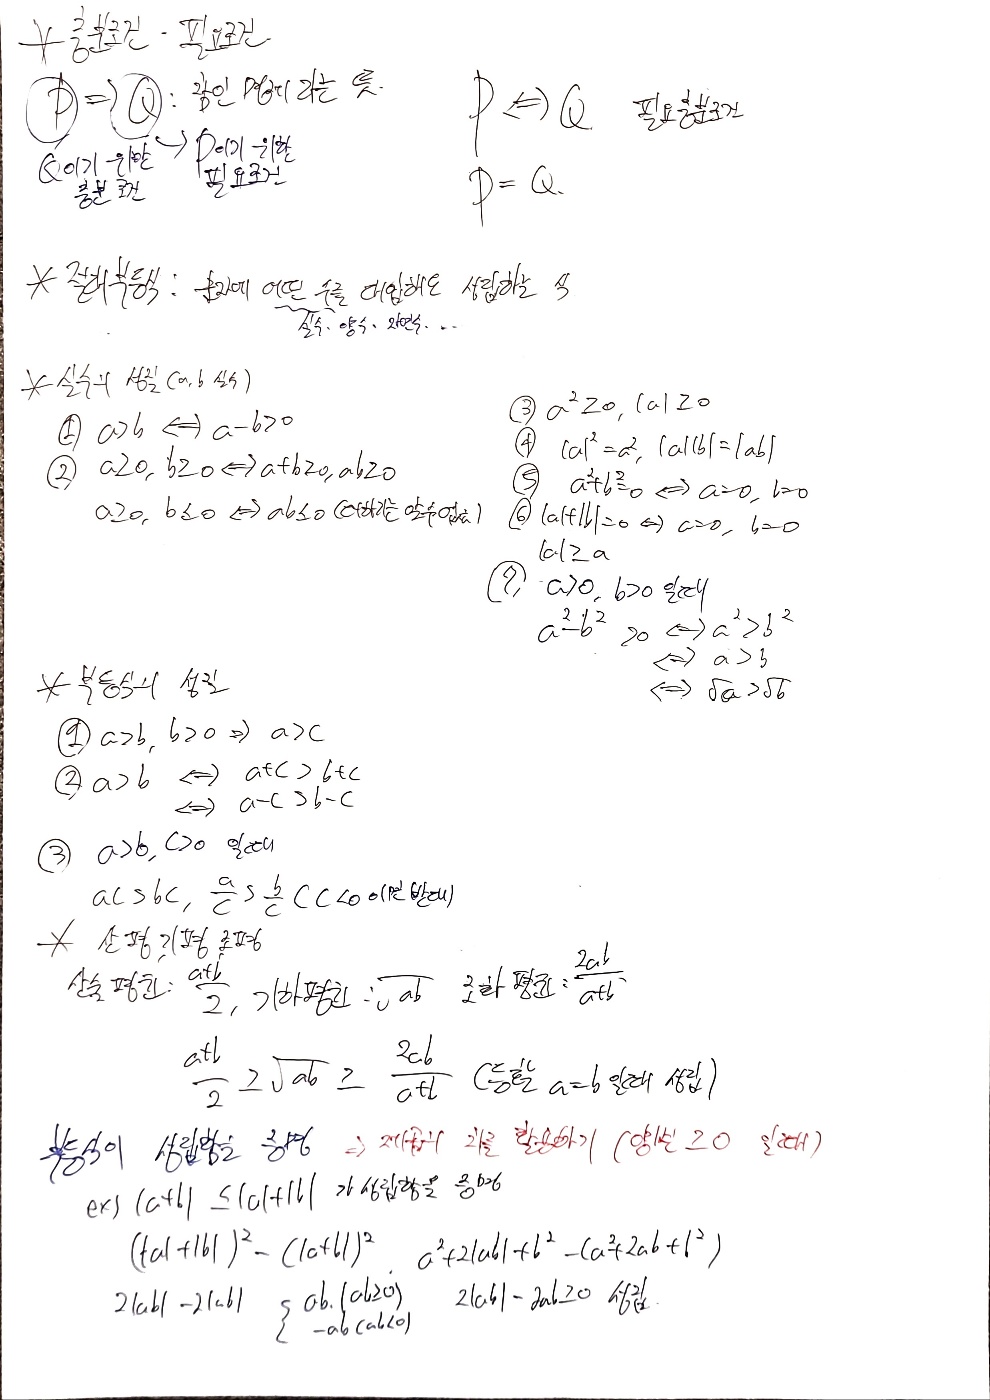 * 충분조건 · 필요조건
P ⇒ Q : 참인 명제 라는 뜻.
Q이기 위한 충분 조건
P이기 위한 필요조건
P ⇔ Q 필요충분조건
P = Q.
* 절대부등식 : 문자에 어떤 수를 대입해도 성립하는 식
실수 · 양수 · 자연수 · ...
* 실수의 성질 (a, b 실수)
① a>b ⇔ a-b>0
② a≥0, b≥0 ⇔ a+b≥0, ab≥0
a≥0, b≤0 ⇔ ab≤0 (더하기는 알수없음)
③ a²≥0, |a|≥0
④ |a|²=a², |a||b|=|ab|
⑤ a²+b²=0 ⇔ a=0, b=0
⑥ |a|+|b|=0 ⇔ a=0, b=0
|a|≥a
⑦ a>0, b>0 일때
a²-b² >0 ⇔ a²>b²
⇔ a>b
⇔ √a>√b
* 부등식의 성질
① a>b, b>0 ⇒ a>c
② a>b ⇔ a+c > b+c
⇔ a-c > b-c
③ a>b, c>0 일때
ac>bc, a/c > b/c (c<0 이면 반대)
* 산평, 기평, 조평
산술 평균 : a+b/2, 기하평균 : √ab 조화 평균 : 2ab/a+b
a+b/2 ≥ √ab ≥ 2ab/a+b (등호는 a=b 일때 성립)
부등식이 성립함을 증명 ⇒ 제곱의 차를 활용하기 (양변 ≥0 일때)
ex) |a+b| ≤ |a|+|b| 가 성립함을 증명
(|a|+|b|)² - (|a+b|)² a²+2|ab|+b² -(a²+2ab+b²)
2|ab| - 2|ab| { ab. (ab≥0) 2|ab| - 2ab≥0 성립.
-ab (ab<0)